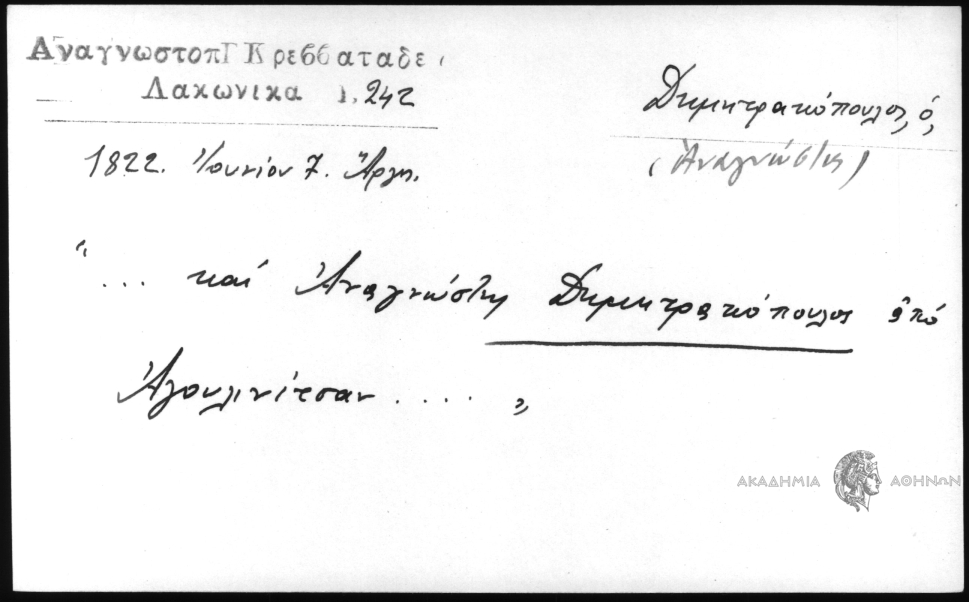 ΑναγνωστοπΓ Κρεββαταδε
Λακωνικα 1, 242
Δημητρακόπουλος, ὁ,
(Ἀναγνώστης)
1822. Ἰουνίου 7. Ἄργος.
"... καὶ Ἀναγνώστης Δημητρακόπουλος ἀπό
Ἀγουλινίτσαν .... "
ΑΚΑΔΗΜΙΑ ΑΘΗΝΩΝ